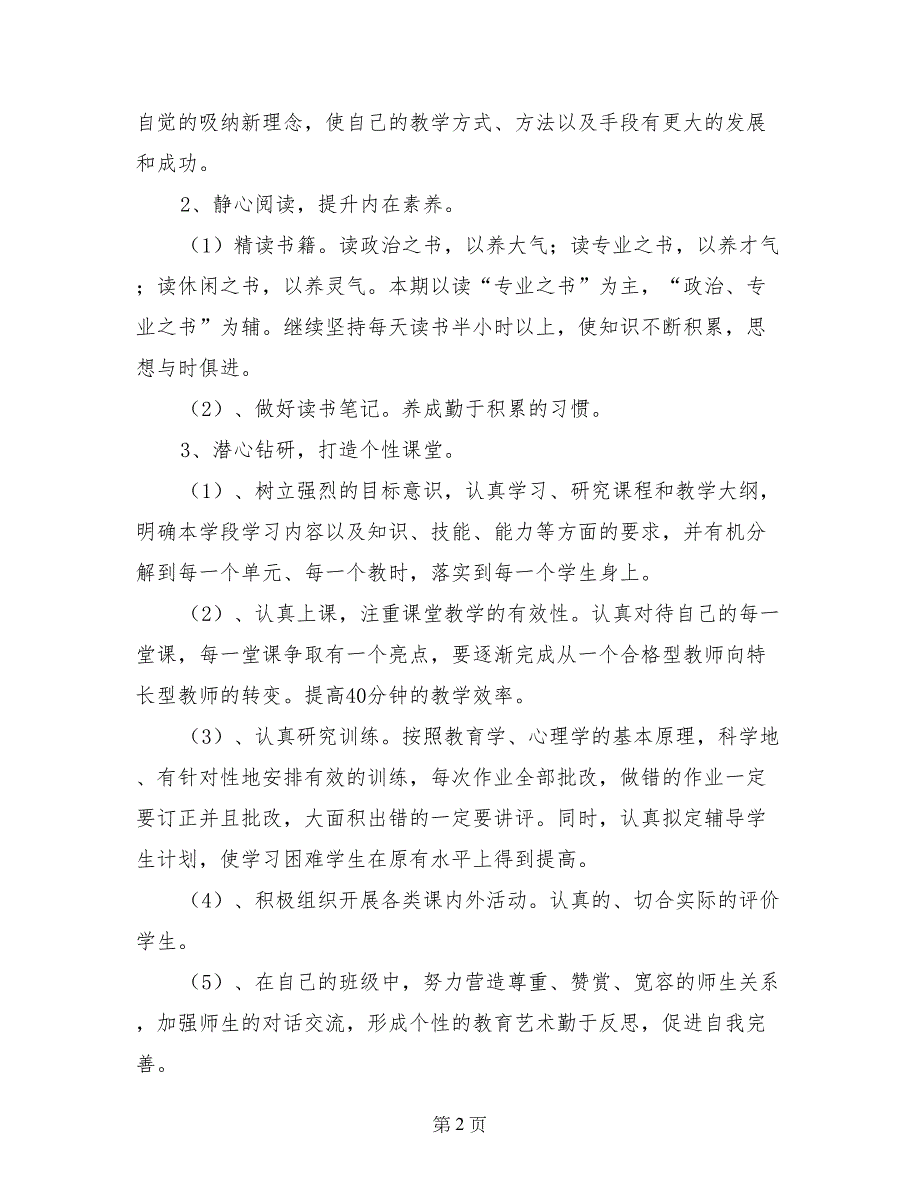 自觉的吸纳新理念，使自己的教学方式、方法以及手段有更大的发展
和成功。
2、静心阅读，提升内在素养。
（1）精读书籍。读政治之书，以养大气；读专业之书，以养才气
；读休闲之书，以养灵气。本期以读“专业之书”为主，“政治、专
业之书”为辅。继续坚持每天读书半小时以上，使知识不断积累，思
想与时俱进。
（2）、做好读书笔记。养成勤于积累的习惯。
3、潜心钻研，打造个性课堂。
（1）、树立强烈的目标意识，认真学习、研究课程和教学大纲，
明确本学段学习内容以及知识、技能、能力等方面的要求，并有机分
解到每一个单元、每一个教时，落实到每一个学生身上。
（2）、认真上课，注重课堂教学的有效性。认真对待自己的每一
堂课，每一堂课争取有一个亮点，要逐渐完成从一个合格型教师向特
长型教师的转变。提高40分钟的教学效率。
（3）、认真研究训练。按照教育学、心理学的基本原理，科学地
、有针对性地安排有效的训练，每次作业全部批改，做错的作业一定
要订正并且批改，大面积出错的一定要讲评。同时，认真拟定辅导学
生计划，使学习困难学生在原有水平上得到提高。
（4）、积极组织开展各类课内外活动。认真的、切合实际的评价
学生。
（5）、在自己的班级中，努力营造尊重、赞赏、宽容的师生关系
，加强师生的对话交流，形成个性的教育艺术勤于反思，促进自我完
善。
第 2 页